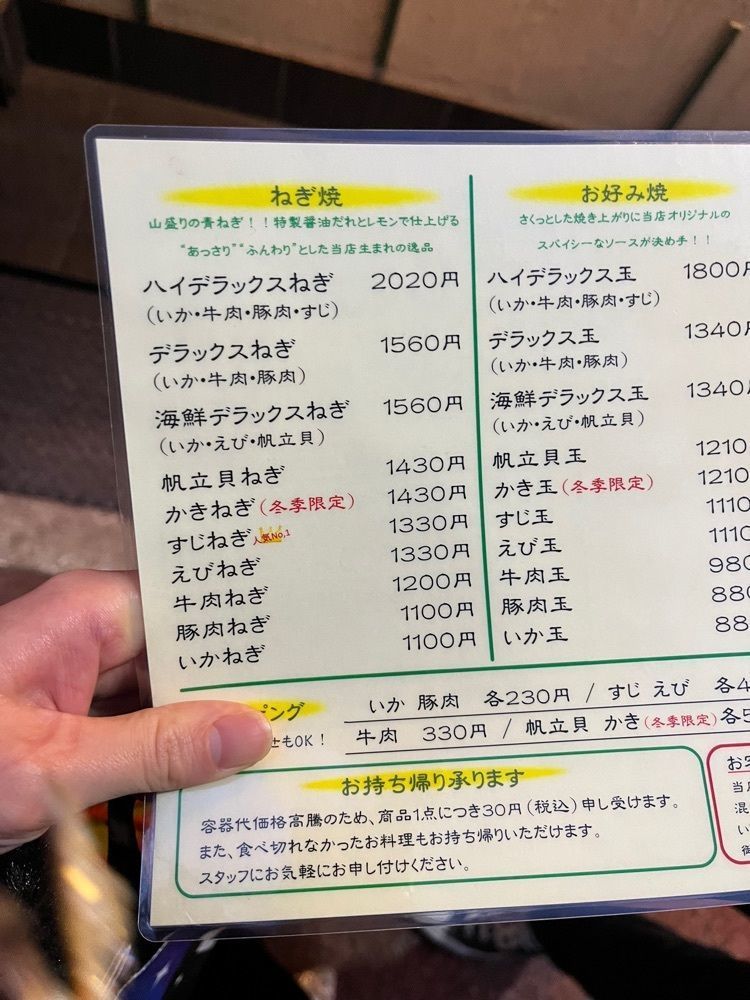 ねぎ焼
山盛りの青ねぎ！！特製醤油だれとレモンで仕上げる
“あっさり”“ふんわり”とした当店生まれの逸品
ハイデラックスねぎ 2020円
(いか・牛肉・豚肉・すじ)
デラックスねぎ 1560円
(いか・牛肉・豚肉)
海鮮デラックスねぎ 1560円
(いか・えび・帆立貝)
帆立貝ねぎ 1430円
かきねぎ(冬季限定) 1430円
すじねぎ 人気No.1 1330円
えびねぎ 1330円
牛肉ねぎ 1200円
豚肉ねぎ 1100円
いかねぎ 1100円
お好み焼
さくっとした焼き上がりに当店オリジナルの
スパイシーなソースが決め手！！
ハイデラックス玉 1800円
(いか・牛肉・豚肉・すじ)
デラックス玉 1340円
(いか・牛肉・豚肉)
海鮮デラックス玉 1340円
(いか・えび・帆立貝)
帆立貝玉 1210
かき玉(冬季限定) 1210
すじ玉 1110
えび玉 1110
牛肉玉 980
豚肉玉 880
いか玉 88
ピング
もOK！
いか 豚肉 各230円 / すじ えび 各4
牛肉 330円 / 帆立貝 かき(冬季限定)各5
お持ち帰り承ります
容器代価格高騰のため、商品1点につき30円(税込)申し受けます。
また、食べ切れなかったお料理もお持ち帰りいただけます。
スタッフにお気軽にお申し付けください。
お
当店
混
い